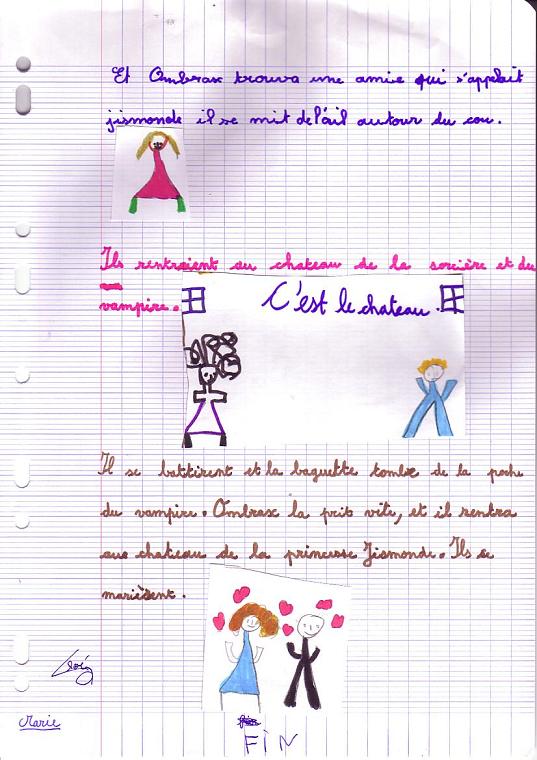 Et Ombrax trouva une amie qui s'appelait
jismonde il se mit de l'ail autour du cou.
Ils rentraient au chateau de la sorcière et du
vampire.
C'est le chateau.
Il se battirent et la baguette tombe de la poche
du vampire. Ombrax la prit vite, et il rentra
aux chateau de la princesse Jismonde. Ils se
marièsent.
Marie
FIN